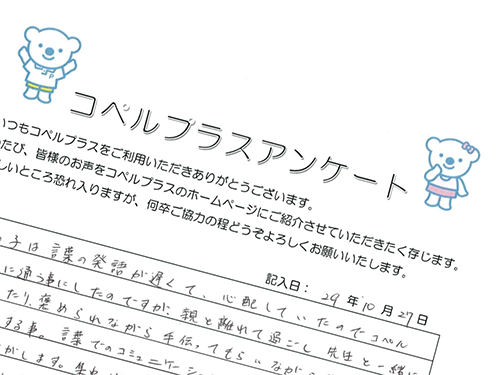 コペルプラスアンケート
いつもコペルプラスをご利用いただきありがとうございます。
たび、皆様のお声をコペルプラスのホームページにご紹介させていただきたく存じます。
しいところ恐れ入りますが、何卒ご協力の程どうぞよろしくお願いいたします。
記入日： 29 年 10 月 27 日
子は言葉の発語が遅くて、心配していたのでコペル
に通う事にしたのですが、親と離れて過ごし 先生と一緒に
たり、褒められながら手伝ってもらいながら
する事。言葉でのコミュニケーシ
がします。